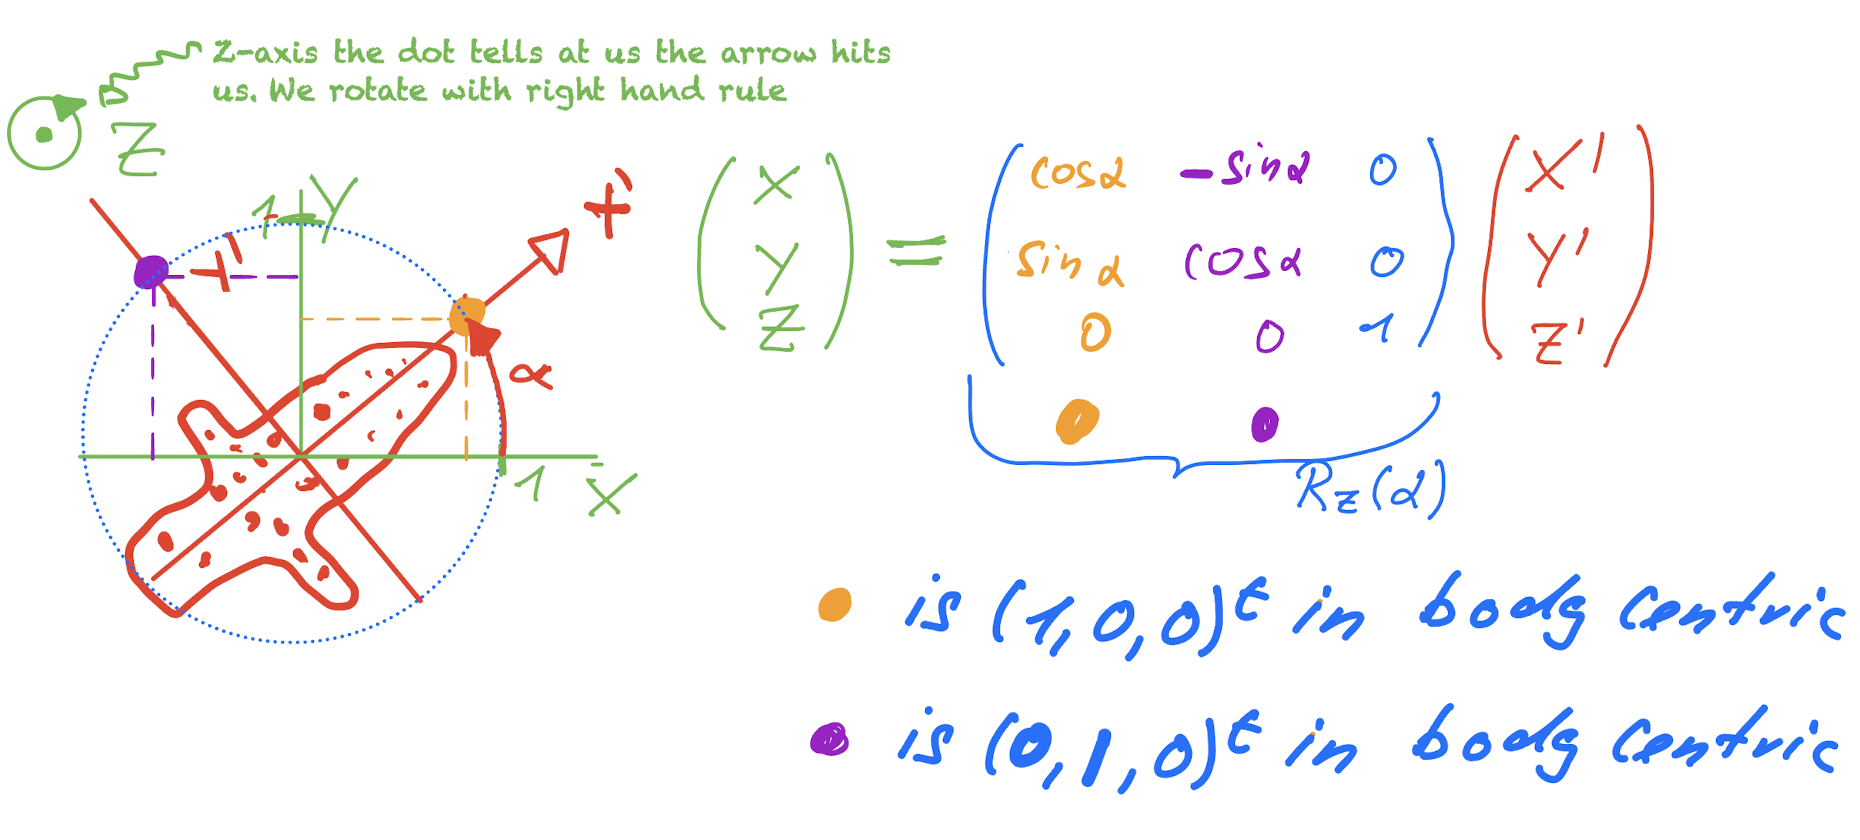 Z-axis the dot tells at us the arrow hits
us. We rotate with right hand rule
Z
1 Y
X'
Y'
α
1 X
( X ) = ( cosα -sinα 0 ) ( X' )
( Y ) ( sinα cosα 0 ) ( Y' )
( Z ) ( 0 0 1 ) ( Z' )
Rz(α)
is (1,0,0)^t in body centric
is (0,1,0)^t in body centric